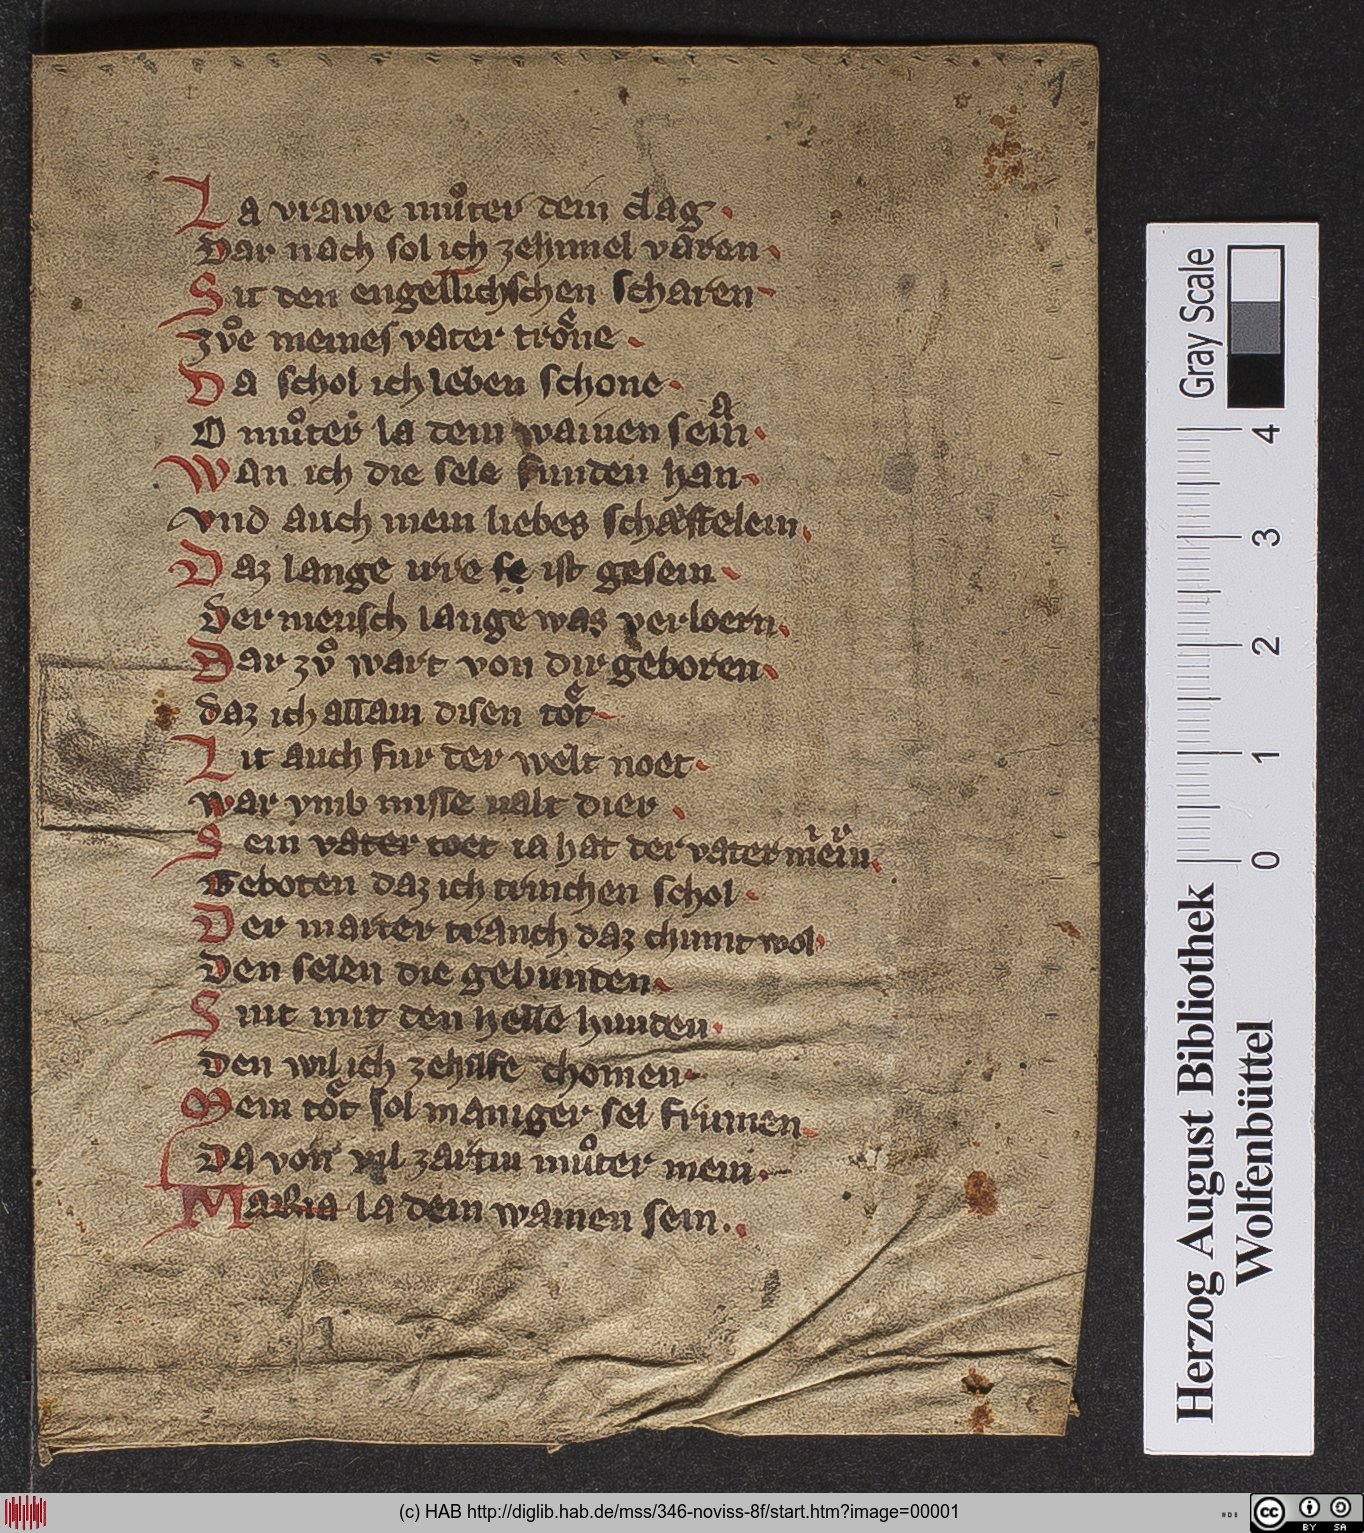 1
La vrawe muͦter dein clag
Dar nach sol ich zehimel varen
Sit den engellichschen scharen
zvͦe meines vater troͤne
Da schol ich leben schone
O muͦter la dein wainen sein
Wan ich die sele funden han
vnd auch mein liebes schaͤffelein
Daz lange ist gesein
Der mensch lange was verloern
Dar zvͦ wart von dir geboren
daz ich allain disen toͤt
Lit auch fur der welt noet
war vmb misse ualt dier
Sein vater toet ia hat der vater mein
Geboten daz ich trinchen schol
Der marter tranch daz chumt wol
Den selen die gebunden
Sint mit den helle hunden
Den wil ich zehilfe chomen
Mein toͤt sol maniger sel frumen
Da von vil zartiu muͦter mein
Maria la dein wainen sein.
Gray Scale
4
3
2
1
0
Herzog August Bibliothek
Wolfenbüttel
(c) HAB http://diglib.hab.de/mss/346-noviss-8f/start.htm?image=00001
WDB
cc
BY
SA